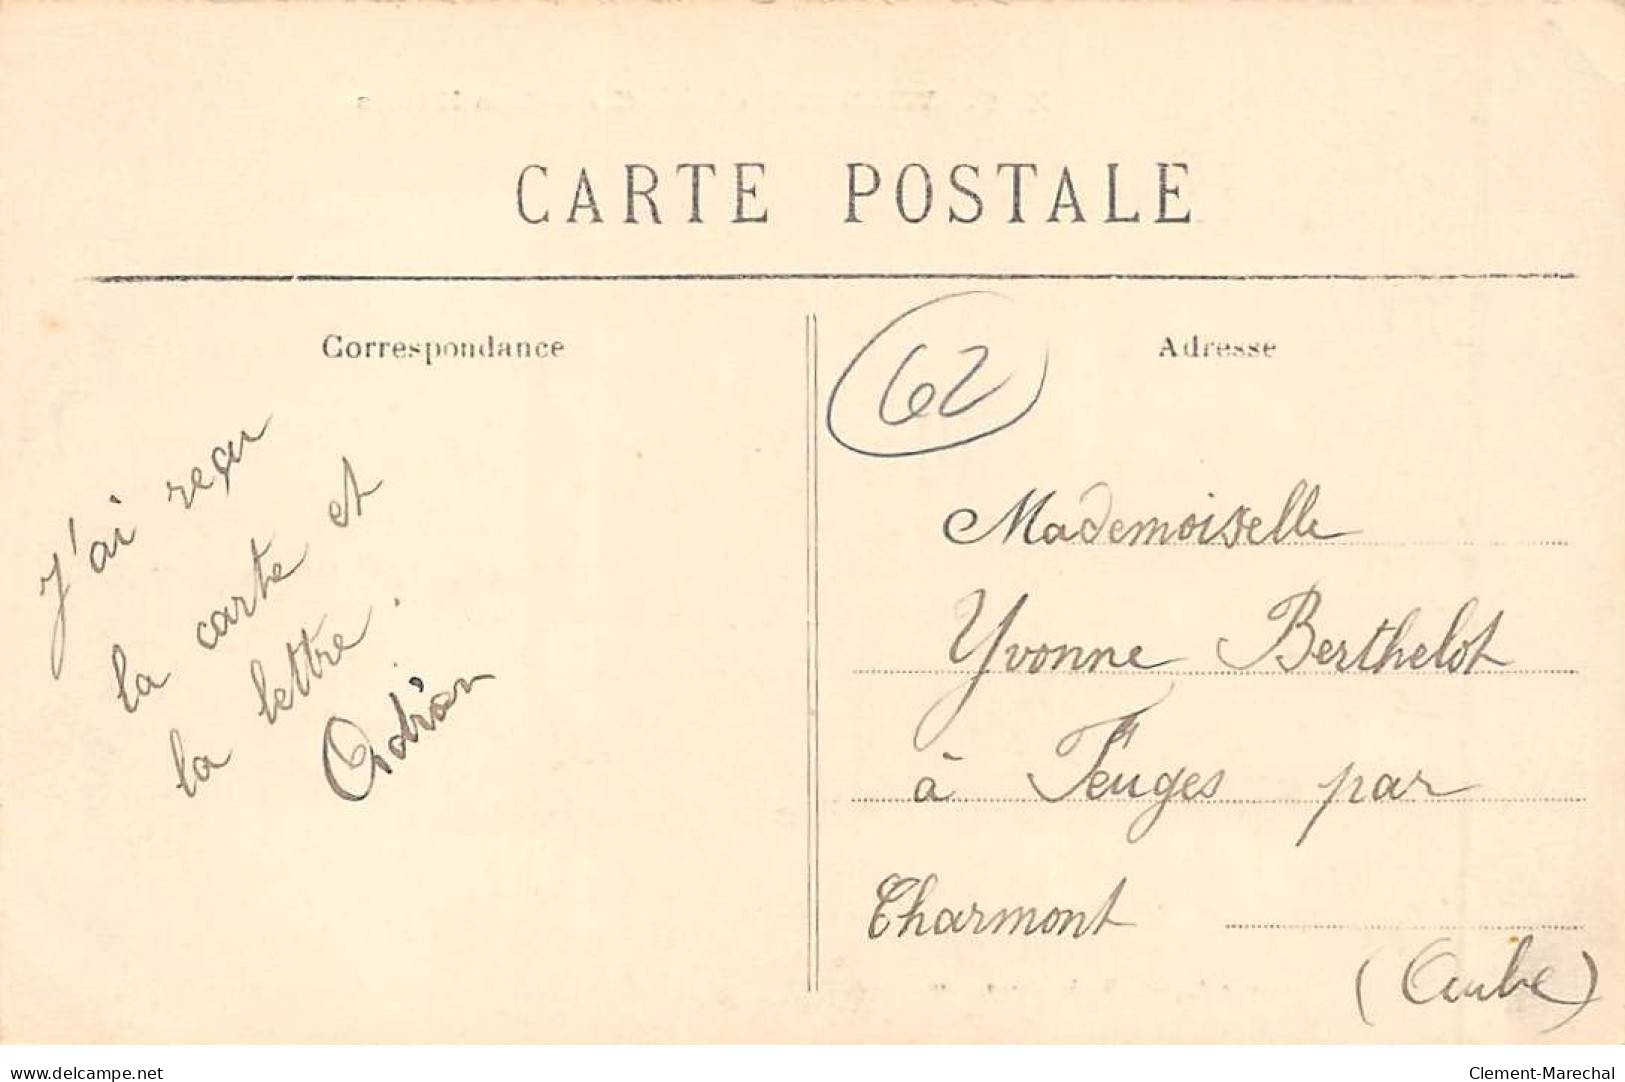 CARTE POSTALE
Correspondance
J'ai reçu
la carte et
la lettre.
Adrien
Adresse
62
Mademoiselle
Yvonne Berthelot
à Feuges par
Charmont
(Aube)
www.delcampe.net
Clement-Marechal